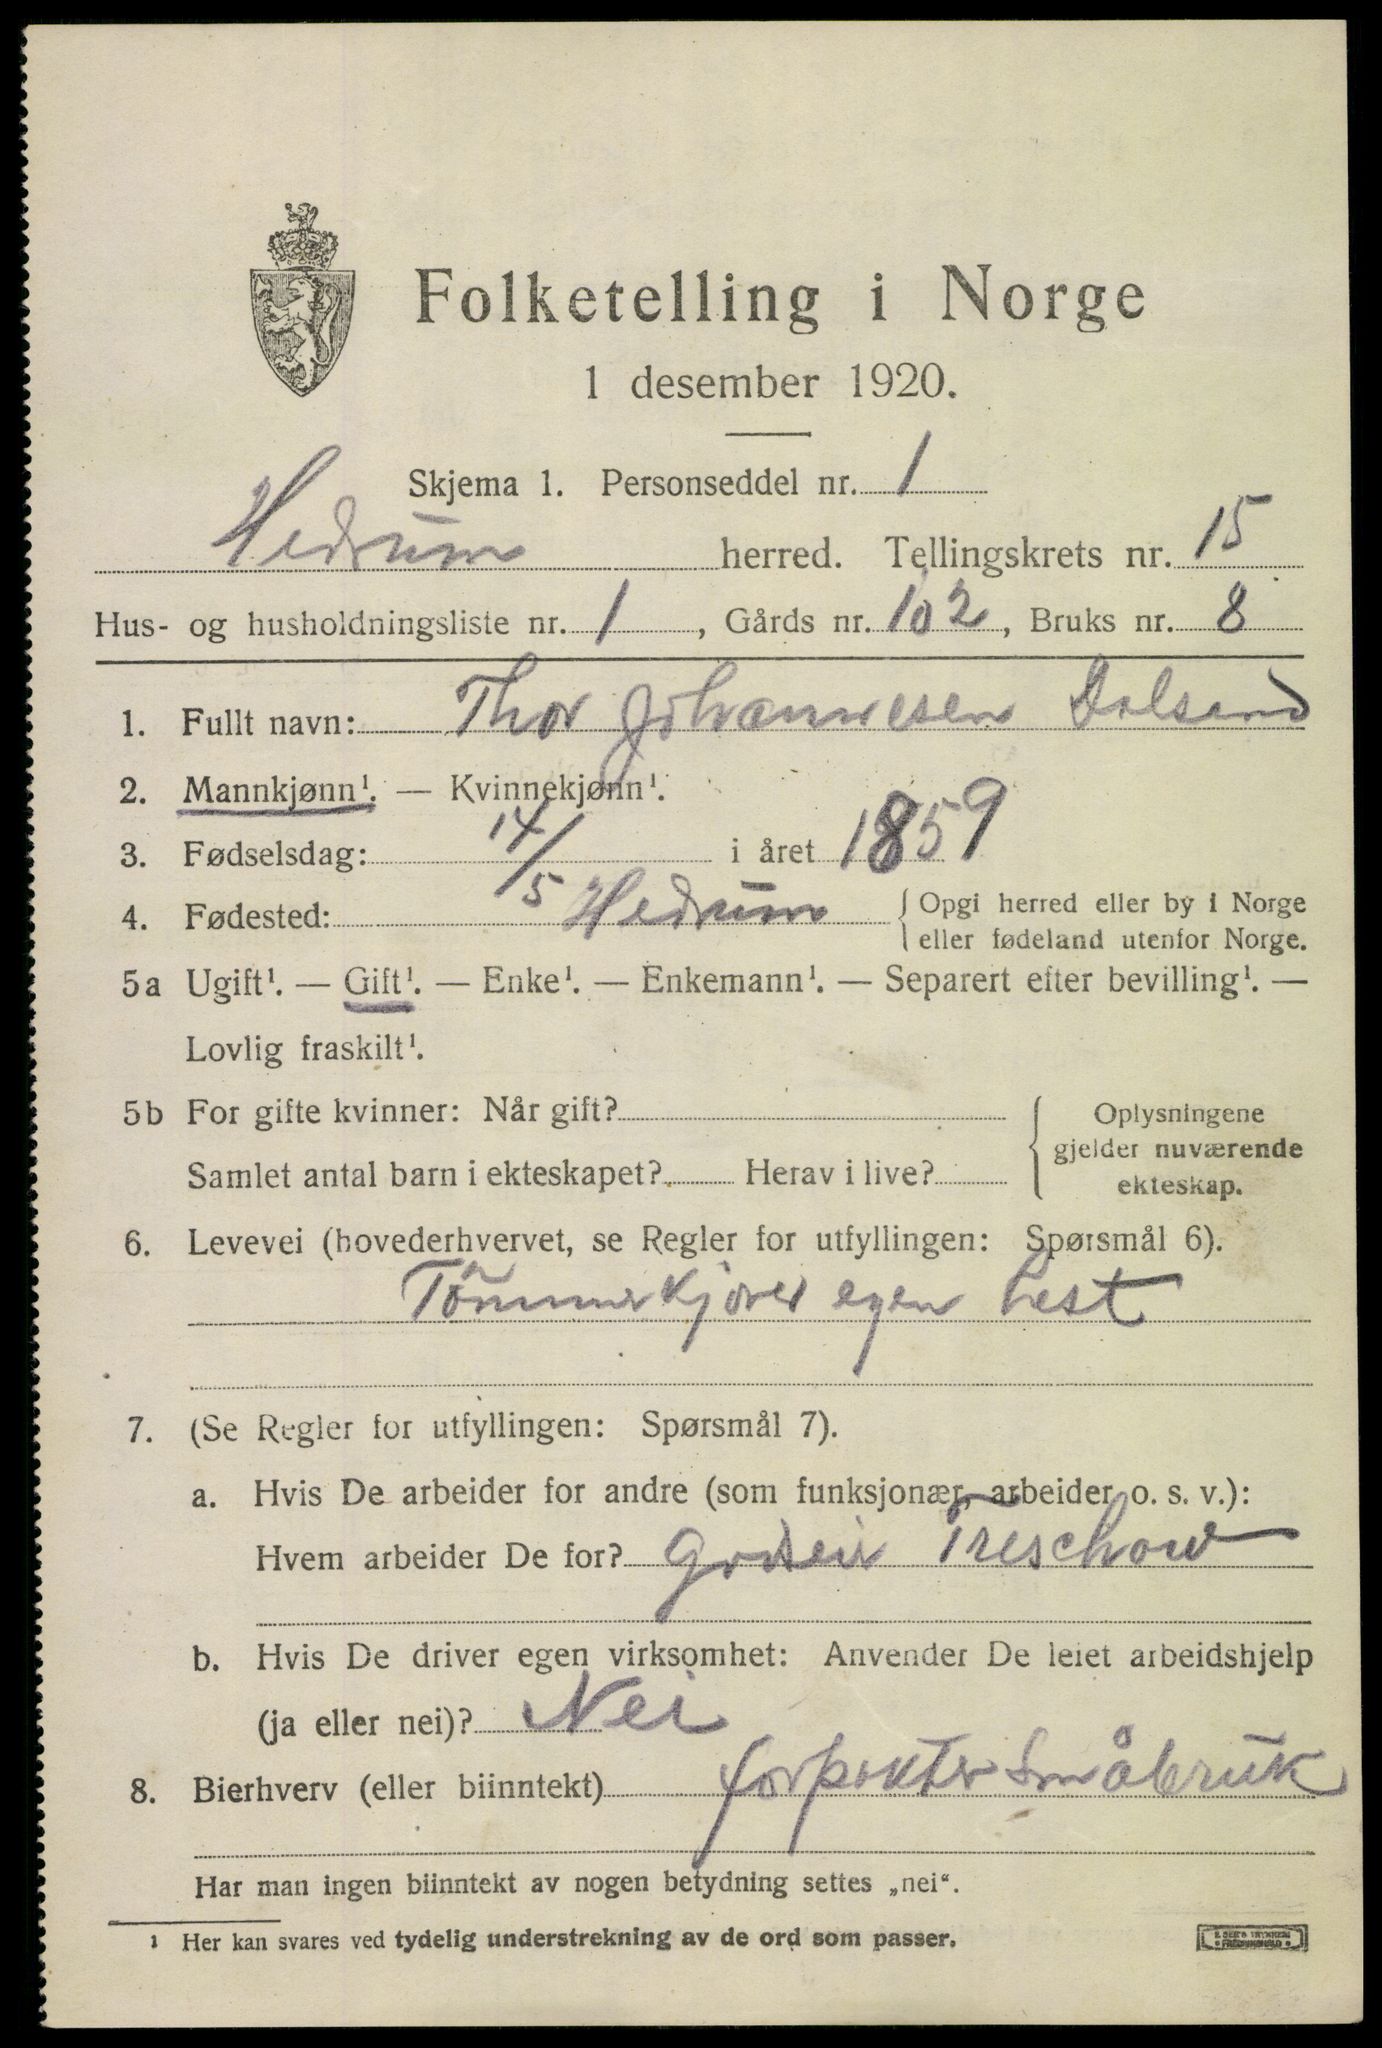 Folketelling i Norge
1 desember 1920.
Skjema 1. Personseddel nr. 1
Hedrum herred. Tellingskrets nr. 15
Hus- og husholdningsliste nr. 1, Gårds nr. 102, Bruks nr. 8
1. Fullt navn: Thor Johannesen Dalsend
2. Mannkjønn¹. — Kvinnekjønn¹.
3. Fødselsdag: 14/5 i året 1859
4. Fødested: Hedrum { Opgi herred eller by i Norge
eller fødeland utenfor Norge.
5a Ugift¹. — Gift¹. — Enke¹. — Enkemann¹. — Separert efter bevilling¹. —
Lovlig fraskilt¹.
5b For gifte kvinner: Når gift?
Samlet antal barn i ekteskapet? Herav i live?
{ Oplysningene
gjelder nuværende
ekteskap.
6. Levevei (hovederhvervet, se Regler for utfyllingen: Spørsmål 6).
Tømmerkjører egen hest
7. (Se Regler for utfyllingen: Spørsmål 7).
a. Hvis De arbeider for andre (som funksjonær, arbeider o. s. v.):
Hvem arbeider De for? Godseier Treschow
b. Hvis De driver egen virksomhet: Anvender De leiet arbeidshjelp
(ja eller nei)? Nei
8. Bierhverv (eller biinntekt) forpakter Småbruk
Har man ingen biinntekt av nogen betydning settes „nei“.
¹ Her kan svares ved tydelig understrekning av de ord som passer.